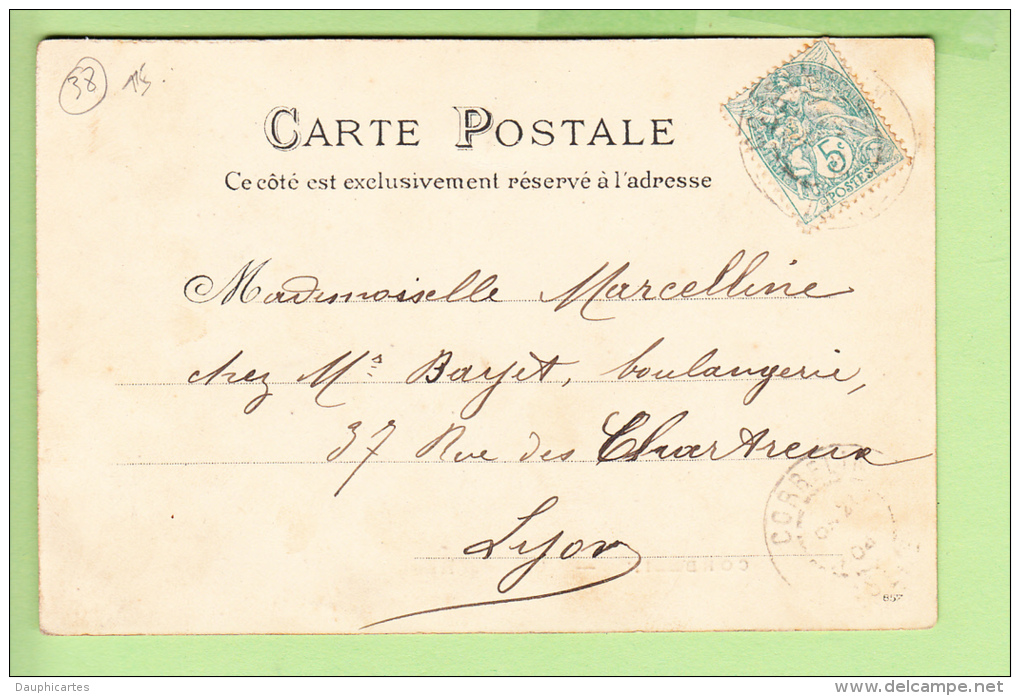 38 15
CARTE POSTALE
Ce côté est exclusivement réservé à l'adresse
5c
POSTES
Mademoiselle Marcelline
chez Mr Bayet, boulangerie,
37 Rue des Chartreux
Lyon
CORBELIN
857
Dauphicartes
www.delcampe.net